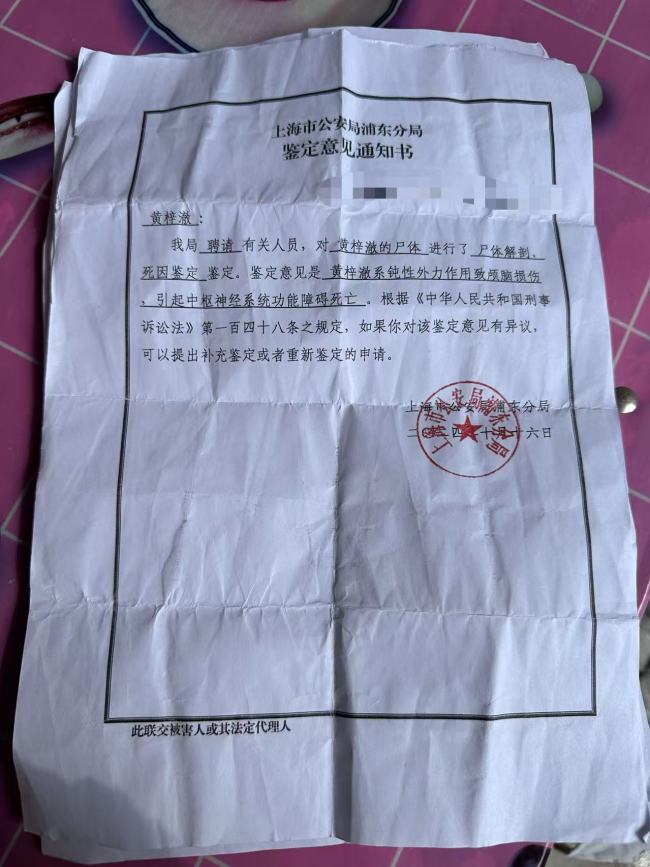 上海市公安局浦东分局
鉴定意见通知书
黄梓澈：
我局 聘请 有关人员，对 黄梓澈的尸体 进行了 尸体解剖，
死因鉴定 鉴定。鉴定意见是 黄梓澈系钝性外力作用致颅脑损伤
，引起中枢神经系统功能障碍死亡 。根据《中华人民共和国刑事
诉讼法》第一百四十八条之规定，如果你对该鉴定意见有异议，
可以提出补充鉴定或者重新鉴定的申请。
上海市公安局浦东分局
二〇二四年十月十六日
上海市公安局浦东分局
此联交被害人或其法定代理人